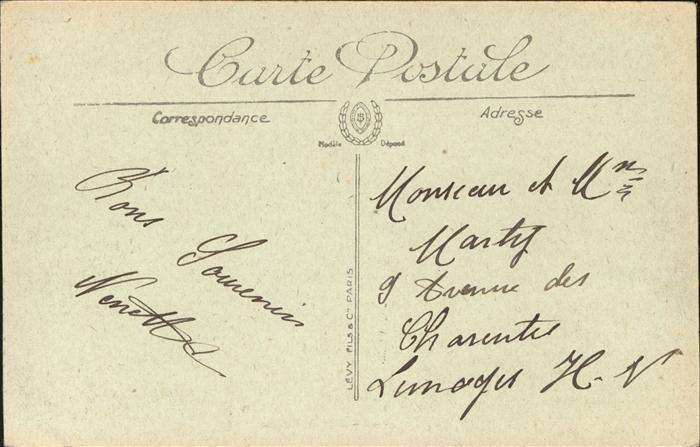 Carte Postale
Correspondance
Adresse
Modèle Déposé
Bons
Souvenirs
Nenette
LÉVY FILS & Cie PARIS
Monsieur et Mme
Marty
9 Avenue des
Charentes
Limoges H-V